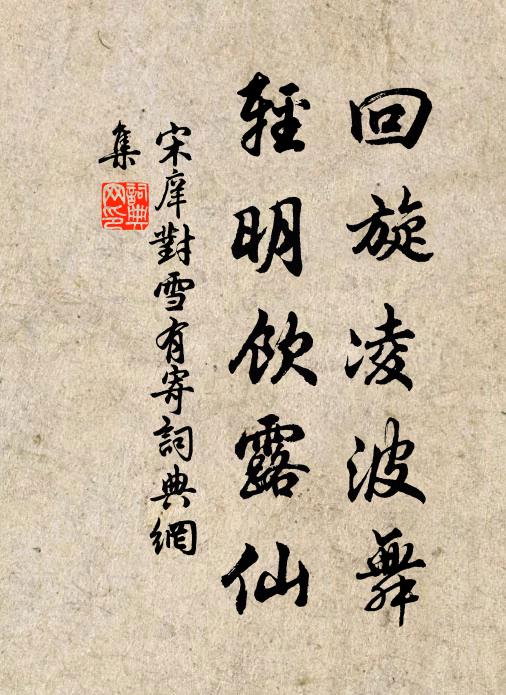 回旋凌波舞
輕明飲露仙
宋庠對雪有寄詞典網
集
詞典网印